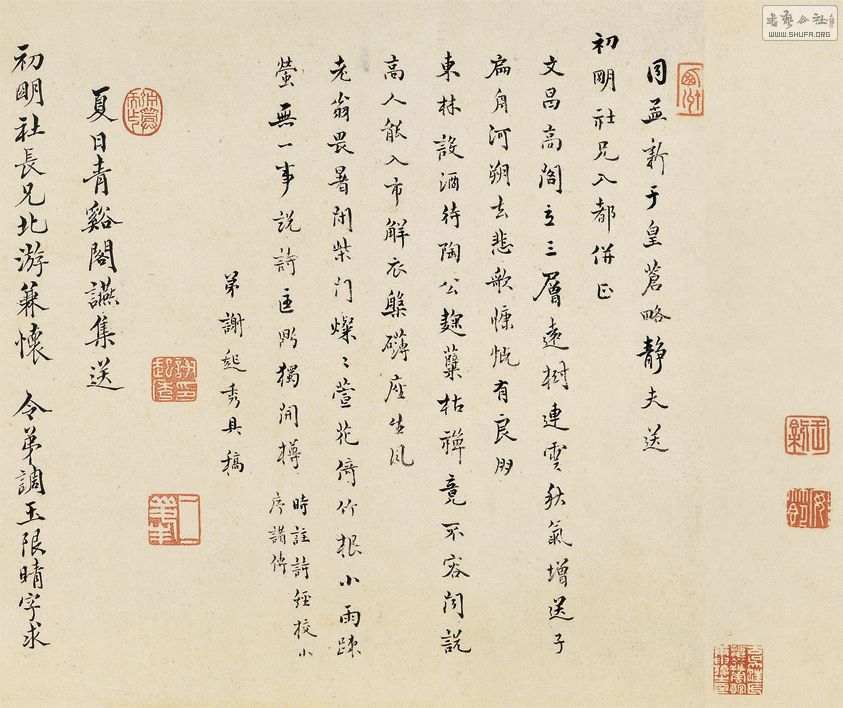 同孟新于皇蒼略靜夫送
初明社兄入都併正
文昌高閣立三層遠樹連雲秋氣增送子
扁舟河朔去悲歌慷慨有良朋
東林設酒待陶公麴蘖枯禪竟不容聞說
高人能入市解衣槃礴座生風
老翁畏暑閉柴門燦〻萱花倚竹根小雨疎
螢無一事說詩匡鼎獨開樽
時註詩經校小
序譜傳
弟謝起秀具稿
夏日青谿閣讌集送
初明社長兄北游兼懷 令弟調玉限晴字求
書藝公社
WWW.SHUFA.ORG